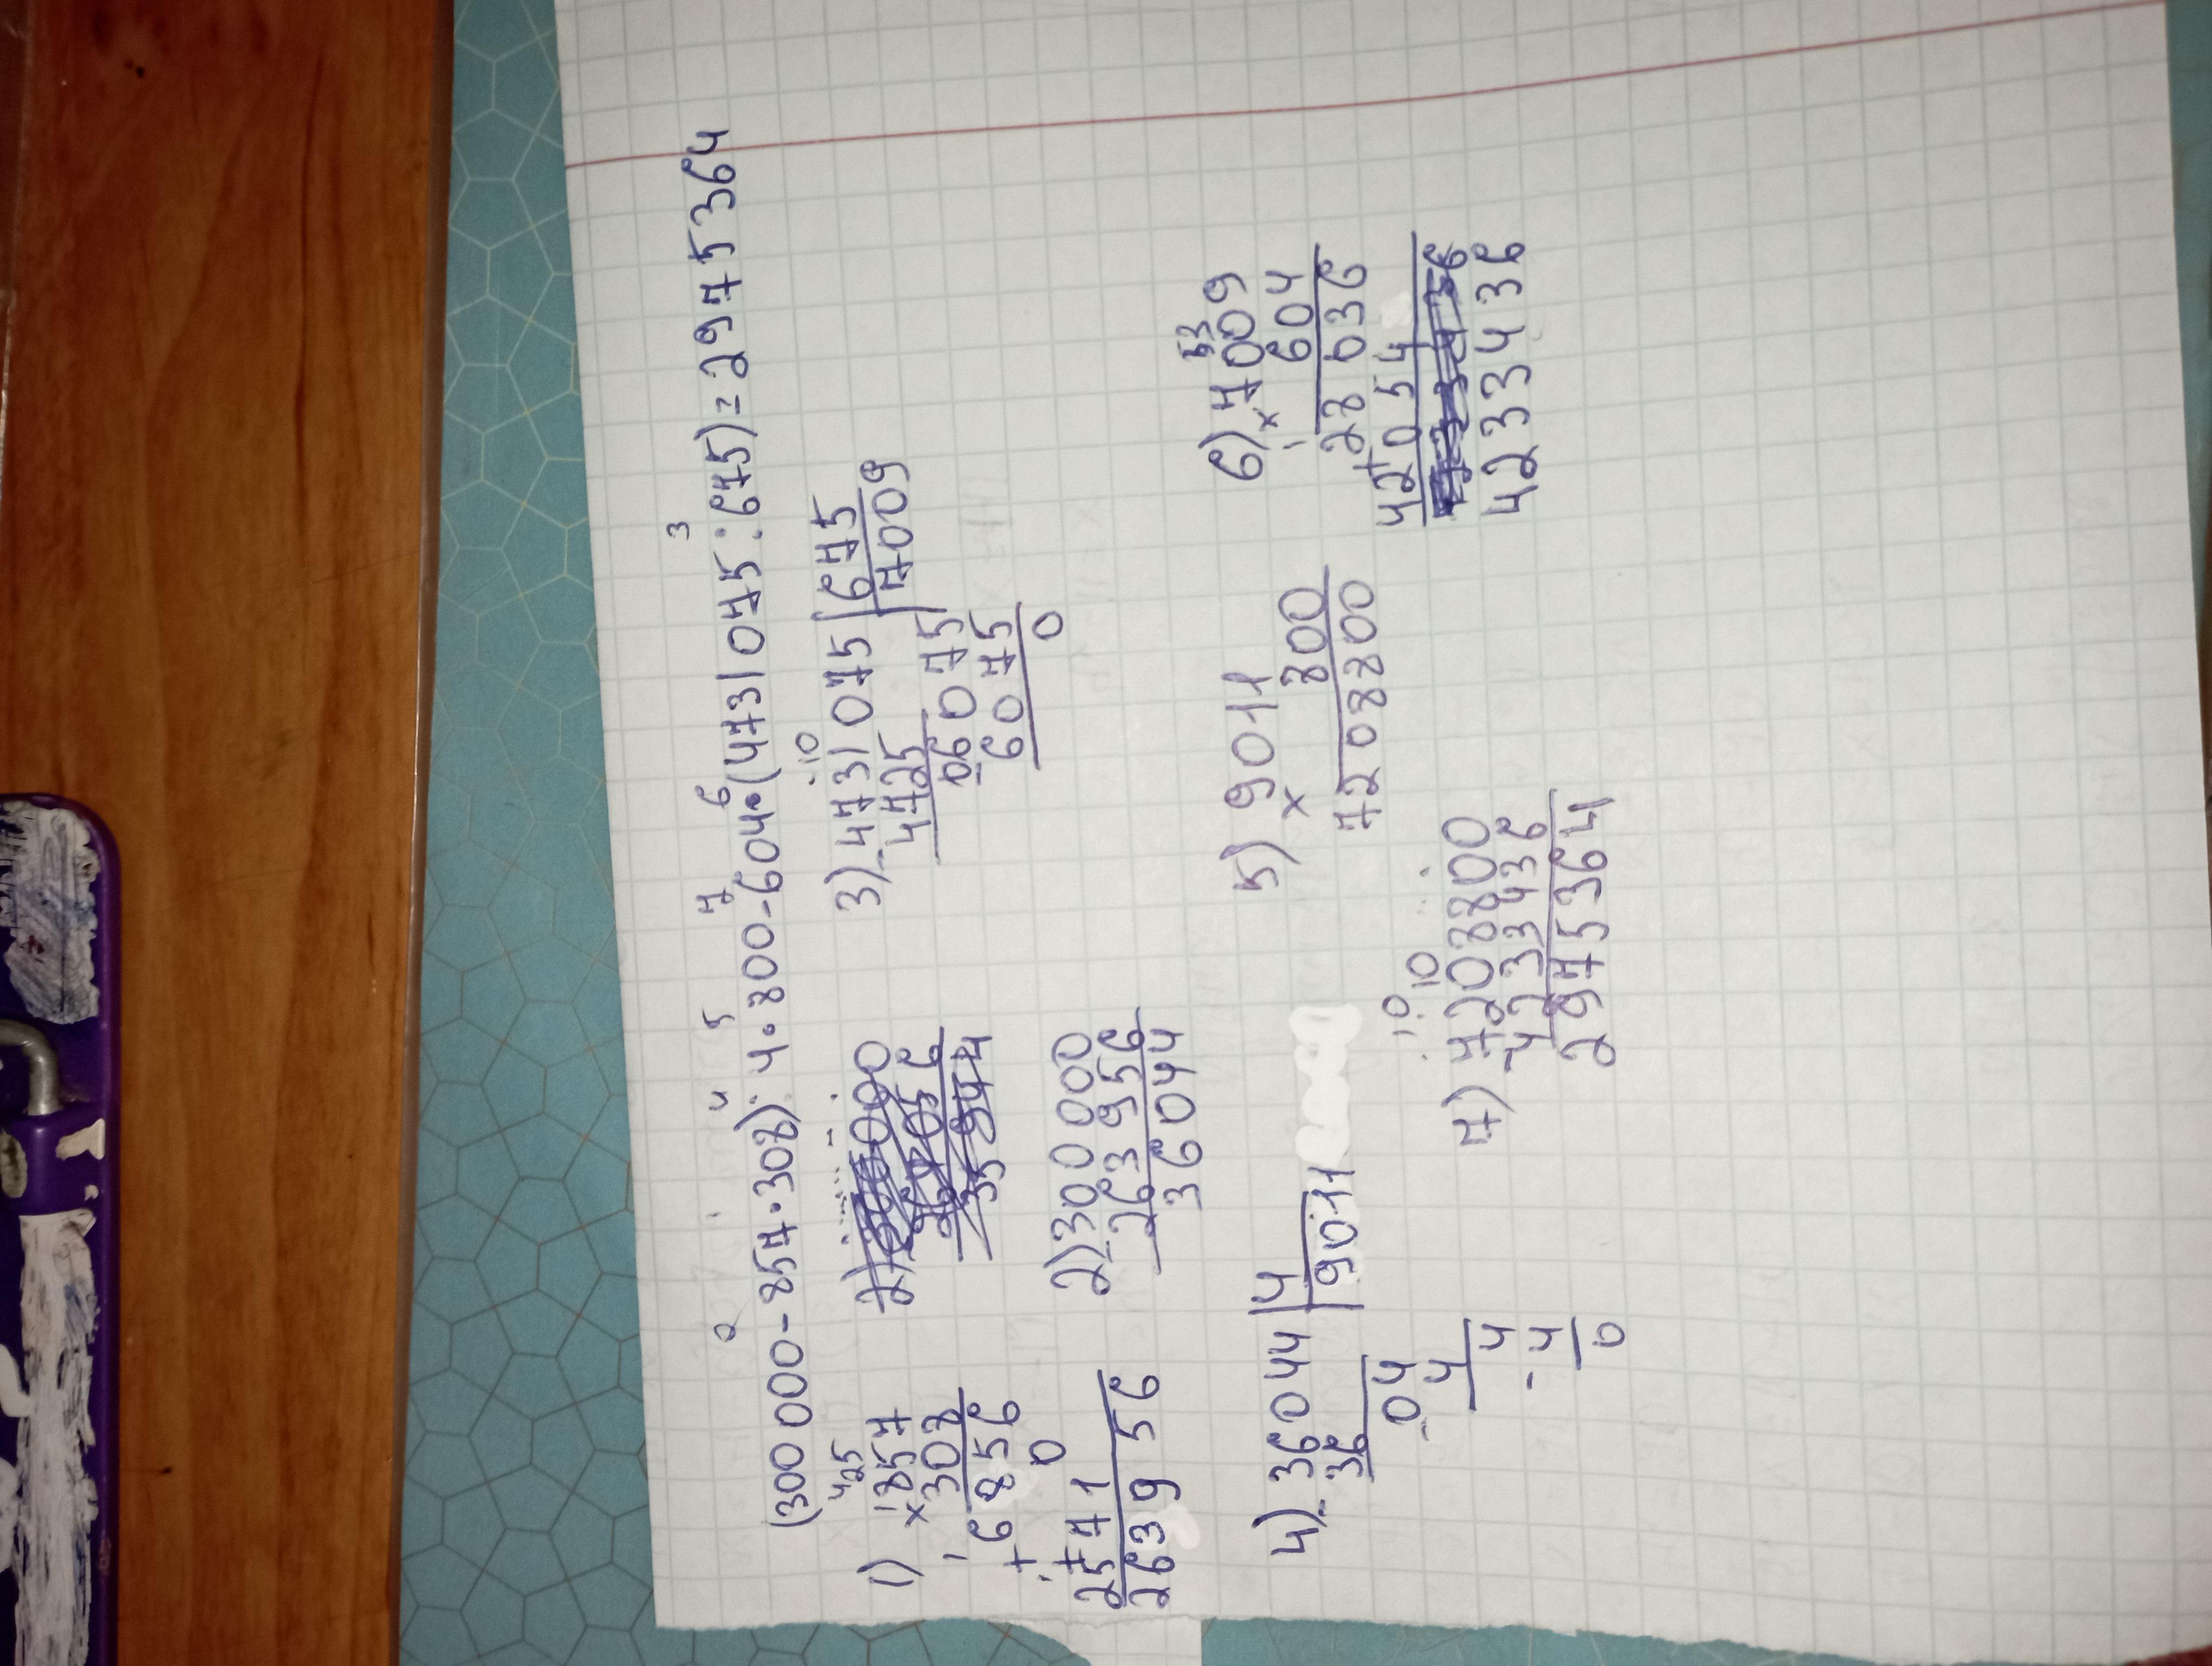 2 4 5 7 6 3
(300 000-857·308):4·800-604·(4731075:675)=2975364
1) 425
×857
308
1
+6856
0
+2571
263956
2) 300 000
-263 956
36044
3) ·10
-4731075|675
4725 7009
-06075
6075
0
4) -36044|4
36 9011
-04
4
4
-4
0
5) 9011
× 800
7208800
6) 53
×7009
604
1
28036
+42054
4233436
7) ·10 10
-7208800
4233436
2975364